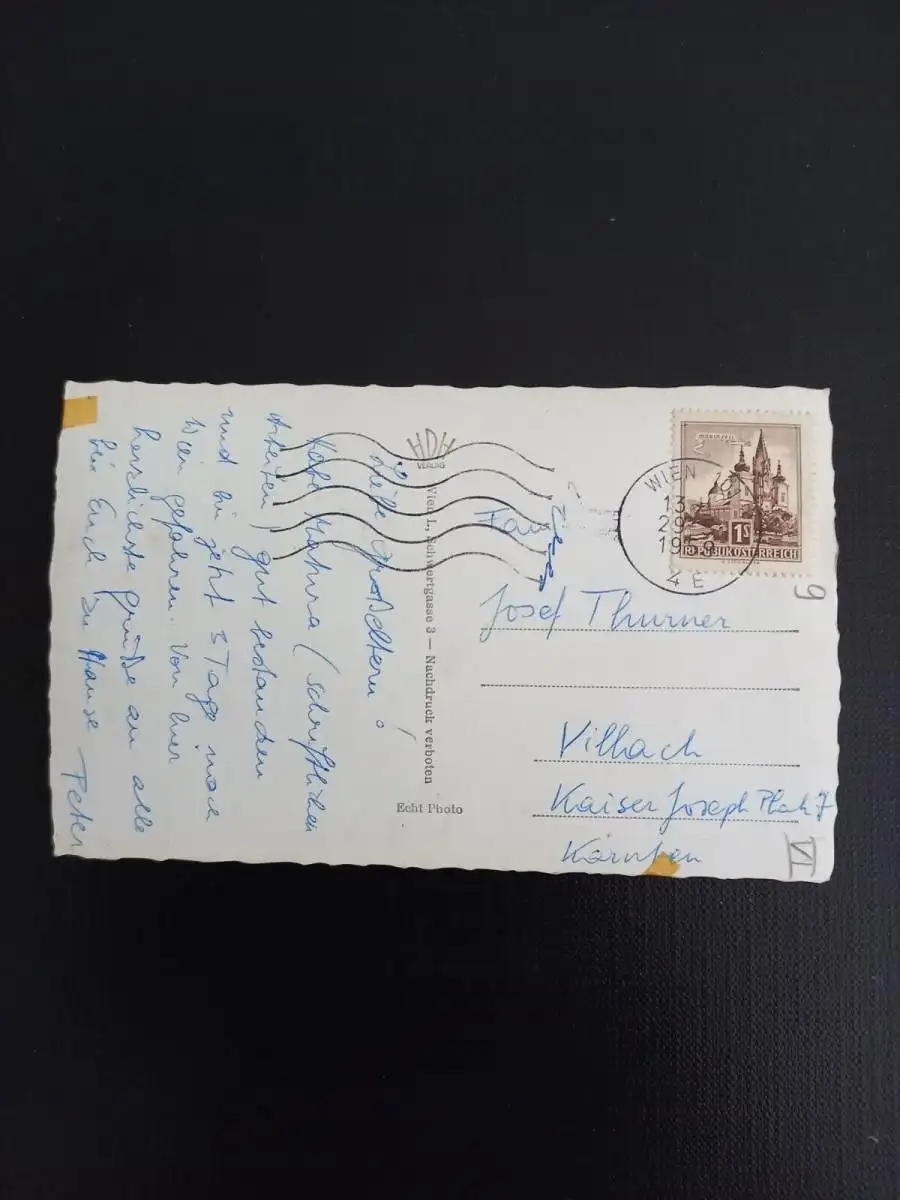 Liebe Großeltern!
Habe Matura (schriftlichen
Arbeiten) gut bestanden
und bin jetzt 3 Tage nach
Wien gefahren. Von hier
herzlichste Grüße an alle
bei Euch zu Hause Peter
HDH
VERLAG
Wien I., Schwertgasse 3 — Nachdruck verboten
Echt Photo
MARIAZELL
1S
REPUBLIK ÖSTERREICH
WIEN
13
29
4E
Josef Thurner
Villach
Kaiser Joseph Platz 7
Kärnten
9
VI